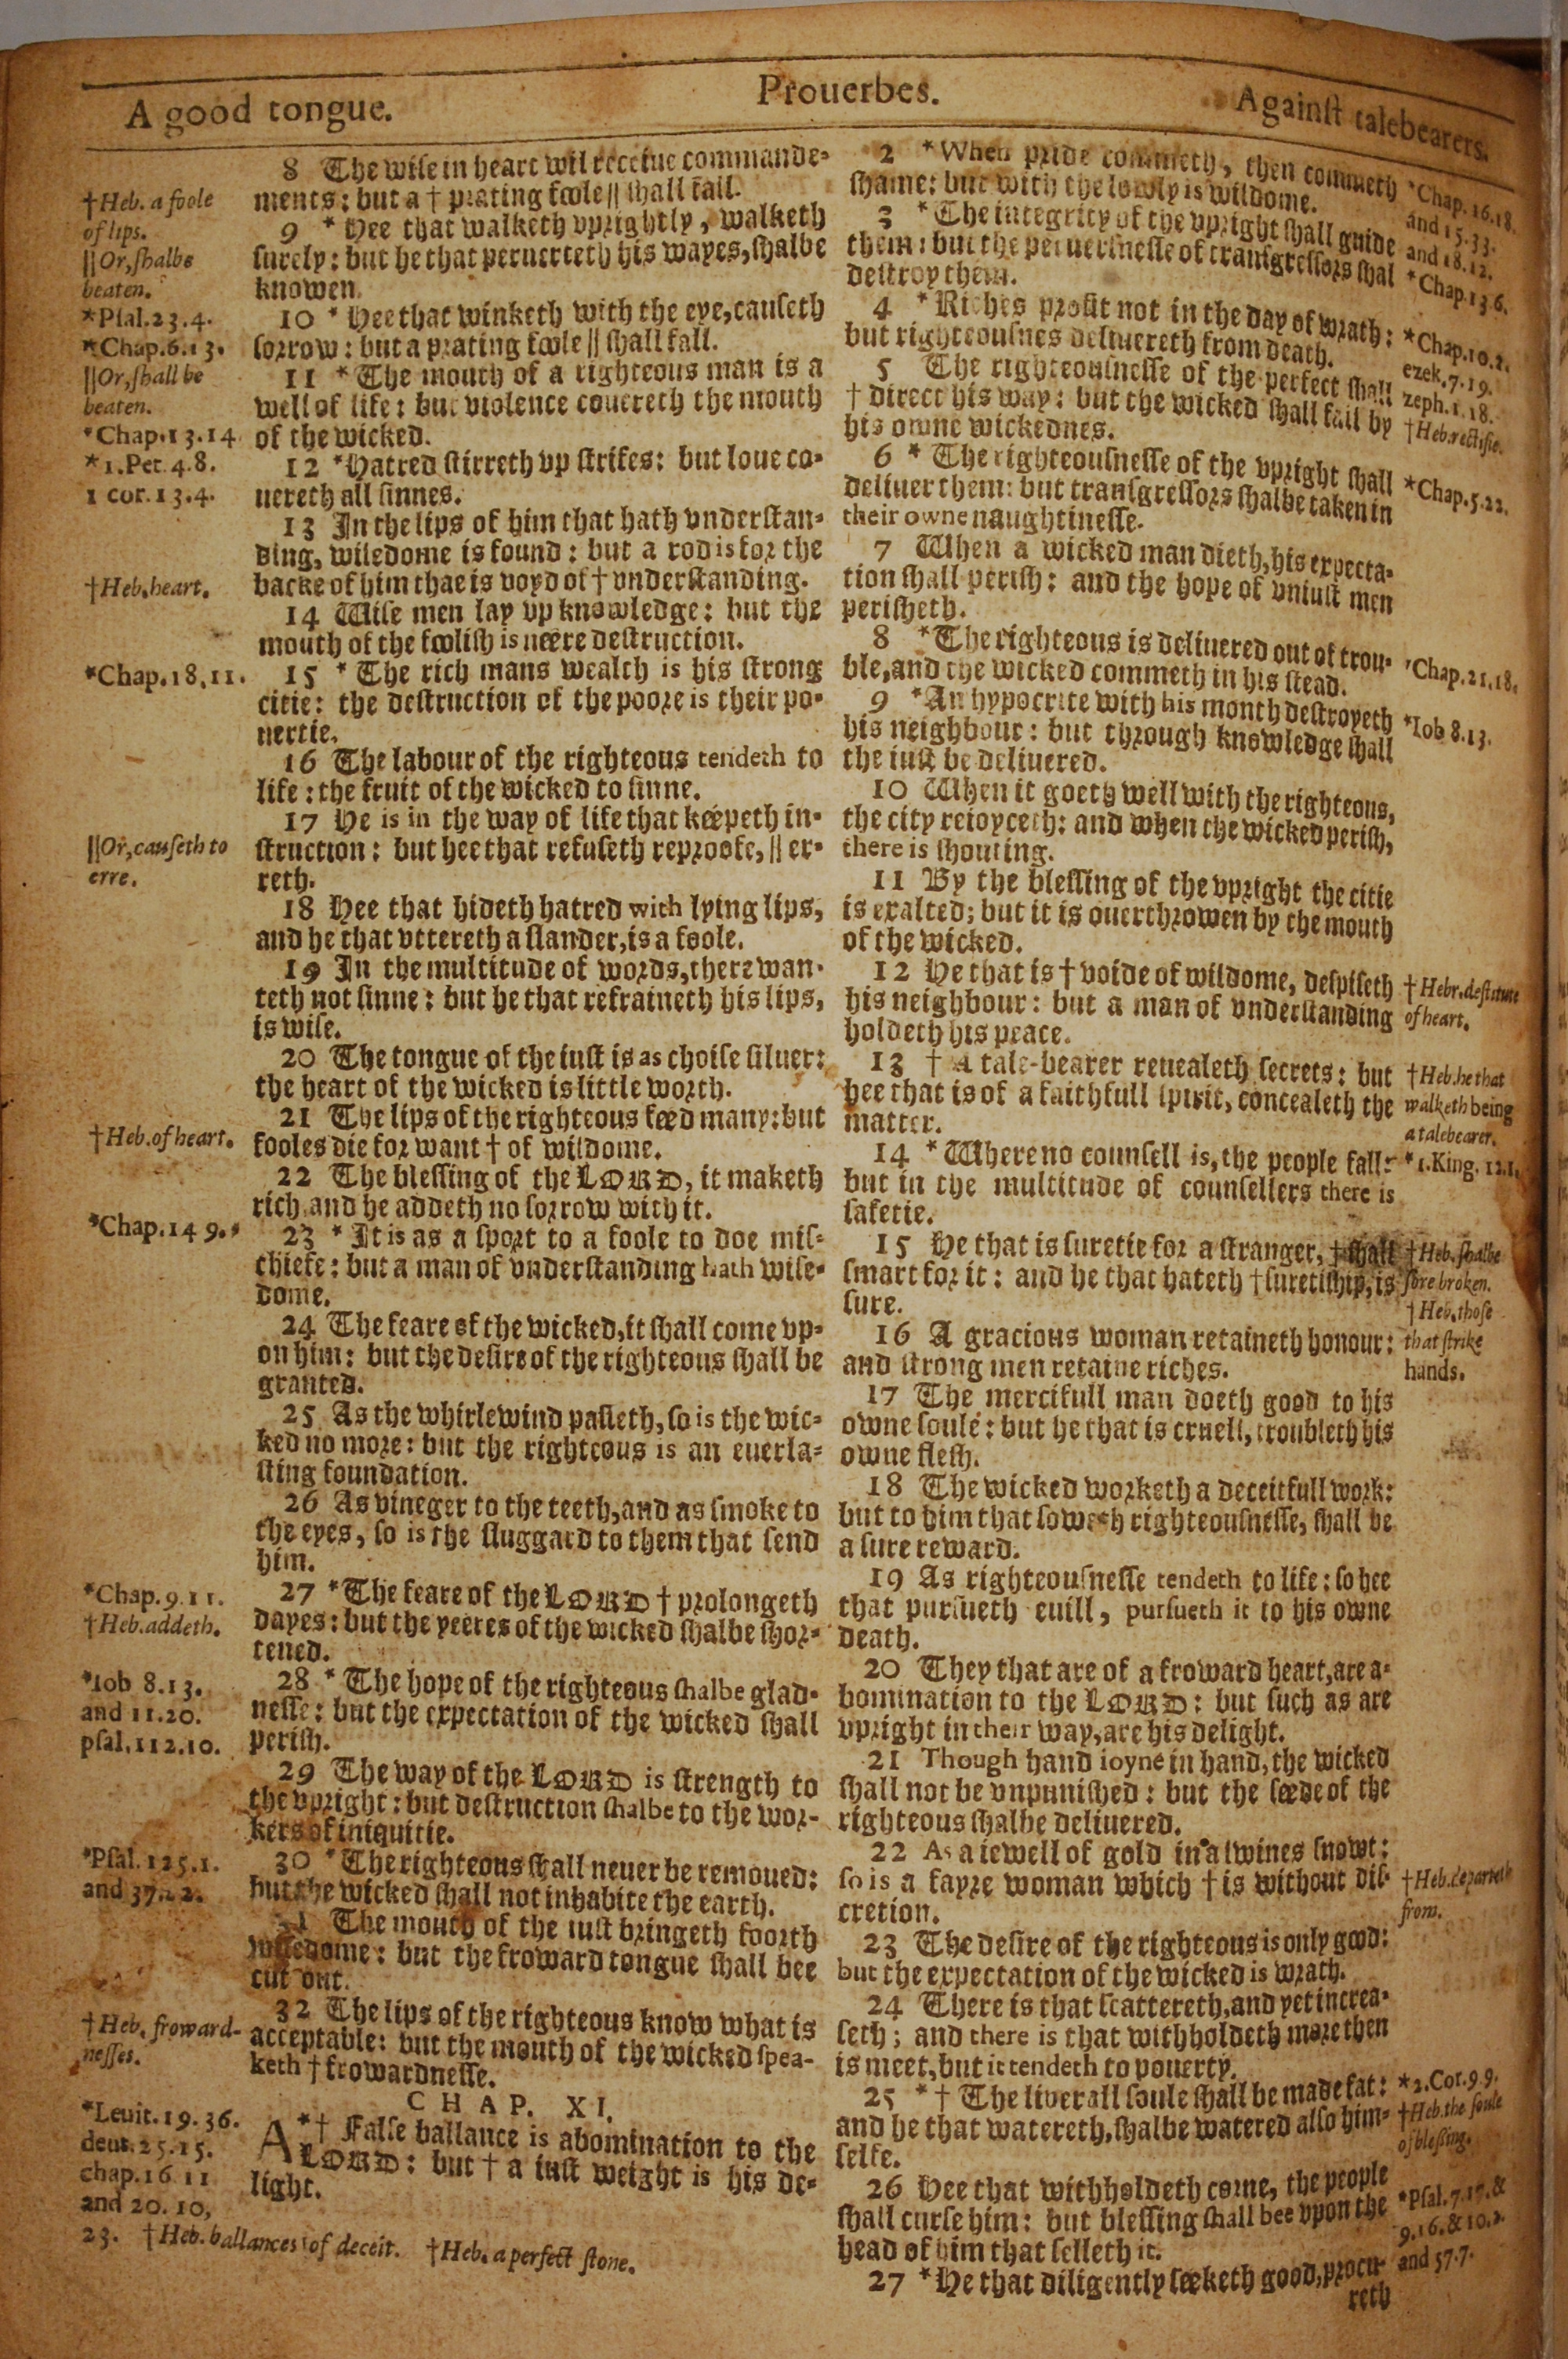 A good tongue.
Prouerbes.
Againſt talebearers.
†Heb. a foole
of lips.
||Or, ſhalbe
beaten.
*Pſal.23.4.
*Chap.6.13.
||Or, ſhall be
beaten.
*Chap.13.14
*1.Pet.4.8.
1 cor.13.4.
†Heb.heart.
*Chap.18,11.
||Or, cauſeth to
erre.
†Heb.of heart.
*Chap.14 9.
*Chap.9.11.
†Heb.addeth.
*Iob 8.13.
and 11.20.
pſal.112.10.
*Pſal.125.1.
and 37.22.
†Heb. froward-
neſſes.
*Leuit.19.36.
deut.25.15.
chap.16 11
and 20.10,
23. †Heb. ballances of deceit. †Heb. a perfect ſtone.
8 The wiſe in heart wil receiue commande-
ments: but a † prating foole || ſhall fall.
9 * Hee that walketh vprightly, walketh
ſurely: but he that peruerteth his wayes, ſhalbe
knowen.
10 * Hee that winketh with the eye, cauſeth
ſorrow: but a prating foole || ſhall fall.
11 * The mouth of a righteous man is a
well of life: but violence couereth the mouth
of the wicked.
12 *Hatred ſtirreth vp ſtrifes: but loue co-
uereth all ſinnes.
13 In the lips of him that hath vnderſtan-
ding, wiſedome is found: but a rod is for the
backe of him thae is voyd of † vnderſtanding.
14 Wiſe men lay vp knowledge: but the
mouth of the fooliſh is neere deſtruction.
15 * The rich mans wealth is his ſtrong
citie: the deſtruction of the poore is their po-
uertie.
16 The labour of the righteous tendeth to
life: the fruit of the wicked to ſinne.
17 He is in the way of life that keepeth in-
ſtruction: but hee that refuſeth reproofe, || er-
reth.
18 Hee that hideth hatred with lying lips,
and he that vttereth a ſlander, is a foole.
19 In the multitude of words, there wan-
teth not ſinne: but he that refraineth his lips,
is wiſe.
20 The tongue of the iuſt is as choiſe ſiluer:
the heart of the wicked is little worth.
21 The lips of the righteous feed many: but
fooles die for want † of wiſdome.
22 The bleſſing of the LORD, it maketh
rich, and he addeth no ſorrow with it.
23 * It is as a ſport to a foole to doe miſ-
chiefe: but a man of vnderſtanding hath wiſe-
dome.
24 The feare of the wicked, it ſhall come vp-
on him: but the deſire of the righteous ſhall be
granted.
25 As the whirlewind paſſeth, ſo is the wic-
ked no more: but the righteous is an euerla-
ſting foundation.
26 As vineger to the teeth, and as ſmoke to
the eyes, ſo is the ſluggard to them that ſend
him.
27 *The feare of the LORD † prolongeth
dayes: but the yeeres of the wicked ſhalbe ſhor-
tened.
28 * The hope of the righteous ſhalbe glad-
neſſe: but the expectation of the wicked ſhall
periſh.
29 The way of the LORD is ſtrength to
the vpright: but deſtruction ſhalbe to the wor-
kers of iniquitie.
30 *The righteous ſhall neuer be remoued:
but the wicked ſhall not inhabite the earth.
31 The mouth of the iuſt bringeth foorth
wiſedome: but the froward tongue ſhall bee
cut out.
32 The lips of the righteous know what is
acceptable: but the mouth of the wicked ſpea-
keth † frowardneſſe.
CHAP. XI.
A *† Falſe ballance is abomination to the
LORD: but † a iuſt weight is his de-
light.
2 *When pride commeth, then commeth
ſhame: but with the lowly is wiſdome.
3 *The integrity of the vpright ſhall guide
them: but the peruerſneſſe of tranſgreſſors ſhal
deſtroy them.
4 *Riches profit not in the day of wrath:
but righteouſnes deliuereth from death.
5 The righteouſneſſe of the perfect ſhall
† direct his way: but the wicked ſhall fall by
his owne wickednes.
6 * The righteouſneſſe of the vpright ſhall
deliuer them: but tranſgreſſors ſhalbe taken in
their owne naughtineſſe.
7 When a wicked man dieth, his expecta-
tion ſhall periſh: and the hope of vniuſt men
periſheth.
8 *The righteous is deliuered out of trou-
ble, and the wicked commeth in his ſtead.
9 *An hypocrite with his month deſtroyeth
his neighbour: but through knowledge ſhall
the iuſt be deliuered.
10 When it goeth well with the righteous,
the city reioyceth: and when the wicked periſh,
there is ſhouting.
11 By the bleſſing of the vpright the citie
is exalted; but it is ouerthrowen by the mouth
of the wicked.
12 He that is † voide of wiſdome, deſpiſeth
his neighbour: but a man of vnderſtanding
holdeth his peace.
13 † A tale-bearer reuealeth ſecrets: but
hee that is of a faithfull ſpirit, concealeth the
matter.
14 *Where no counſell is, the people fall:
but in the multitude of counſellers there is
ſafetie.
15 He that is ſuretie for a ſtranger, † ſhall
ſmart for it: and he that hateth † ſuretiſhip, is
ſure.
16 A gracious woman retaineth honour:
and ſtrong men retaine riches.
17 The mercifull man doeth good to his
owne ſoule: but he that is cruell, troubleth his
owne fleſh.
18 The wicked worketh a deceitfull work:
but to him that ſoweth righteouſneſſe, ſhall be
a ſure reward.
19 As righteouſneſſe tendeth to life: ſo hee
that purſueth euill, purſueth it to his owne
death.
20 They that are of a froward heart, are a-
bomination to the LORD: but ſuch as are
vpright in their way, are his delight.
21 Though hand ioyne in hand, the wicked
ſhall not be vnpuniſhed: but the ſeede of the
righteous ſhalbe deliuered.
22 As a iewell of gold in a ſwines ſnowt:
ſo is a fayre woman which † is without diſ-
cretion.
23 The deſire of the righteous is only good:
but the expectation of the wicked is wrath.
24 There is that ſcattereth, and yet increa-
ſeth; and there is that withholdeth more then
is meet, but it tendeth to pouerty.
25 *† The liuerall ſoule ſhall be made fat:
and he that watereth, ſhalbe watered alſo him-
ſelfe.
26 Hee that withholdeth corne, the people
ſhall curſe him: but bleſſing ſhall bee vpon the
head of him that ſelleth it.
27 *He that diligently ſeeketh good, procu-
reth
*Chap.16.18.
and 15.33.
and 18.12.
*Chap.13 6.
*Chap.10.2.
ezek.7.19.
zeph.1.18.
†Heb.rectifie.
*Chap.5.22.
*Chap.21,18.
*Iob 8.13.
†Hebr.deſtitute
of heart.
†Heb.he that
walketh being
a talebearer.
*1.King. 12.1.
†Heb. ſhalbe
ſore broken.
†Heb. thoſe
that ſtrike
hands.
†Heb.departeth
from.
*2.Cor.9 9.
†Heb.the ſoule
of bleſſing.
*Pſal.7.17.&
9.16.&10.2.
and 57.7.